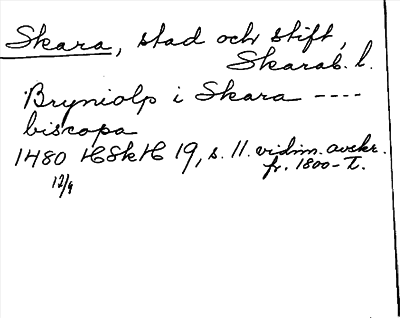 Skara, stad och stift,
Skarab. l.
Bryniolp i Skara ----
biscopa
1480 HSkH 19, s. 11. vidim. avskr.
12/9 fr. 1800-t.